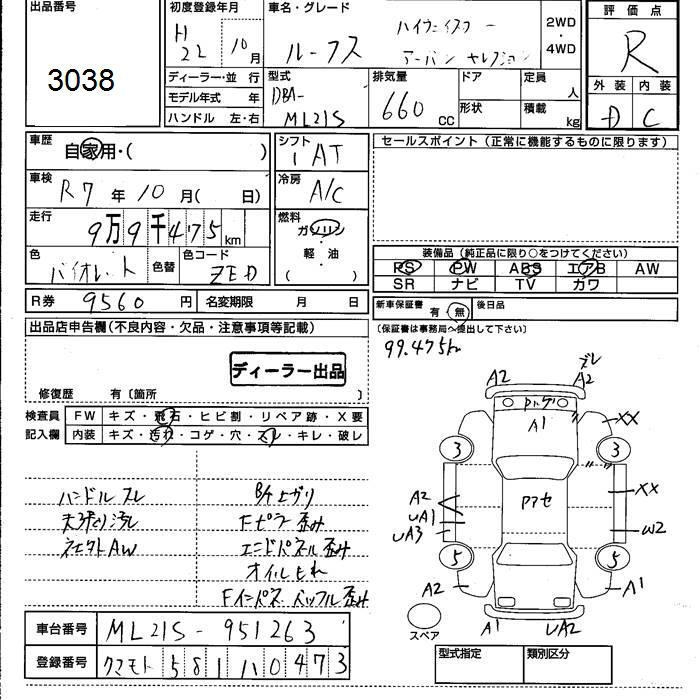 出品番号
3038
初度登録年月
H 22 10月
車名・グレード
ルークス
ハイウェイスター
アーバン セレクション
2WD
・
4WD
評価点
R
外装 内装
D C
ディーラー・並行
モデル年式 年
ハンドル 左・右
型式
DBA-
ML21S
排気量
660 cc
ドア
形状
定員
人
積載
kg
車歴
自家用・( )
シフト
IAT
セールスポイント(正常に機能するものに限ります)
車検
R7年10月( 日)
冷房
A/C
走行
9万9千475km
燃料
ガソリン
・
軽油
( )
色
バイオレット
色替
色コード
ZED
装備品(純正品に限り○をつけてください)
PS PW ABS エアB AW
SR ナビ TV カワ
R券 9560円
名変期限 月 日
新車保証書 有・無
後日品
(保証書は事務局へ提出して下さい)
99.475km
出品店申告欄(不良内容・欠品・注意事項等記載)
ディーラー出品
修復歴 有〔箇所 〕
検査員
記入欄
FW キズ・飛石・ヒビ割・リペア跡・X要
内装 キズ・汚れ・コゲ・穴・スレ・キレ・破レ
ハンドル スレ
天張り汚レ
ネクストAW
B/I上ガリ
Fピラー歪み
エンドパネル歪み
オイルもれ
Fインパネ バッフル歪み
A2
ズレ
A2
A1
XX
3
3
XX
A2
UA1
UA3
W2
5
5
A2
A1
A1
UA2
スペア
車台番号 ML21S-951263
登録番号 クマモト 581 ハ 0473
型式指定
類別区分